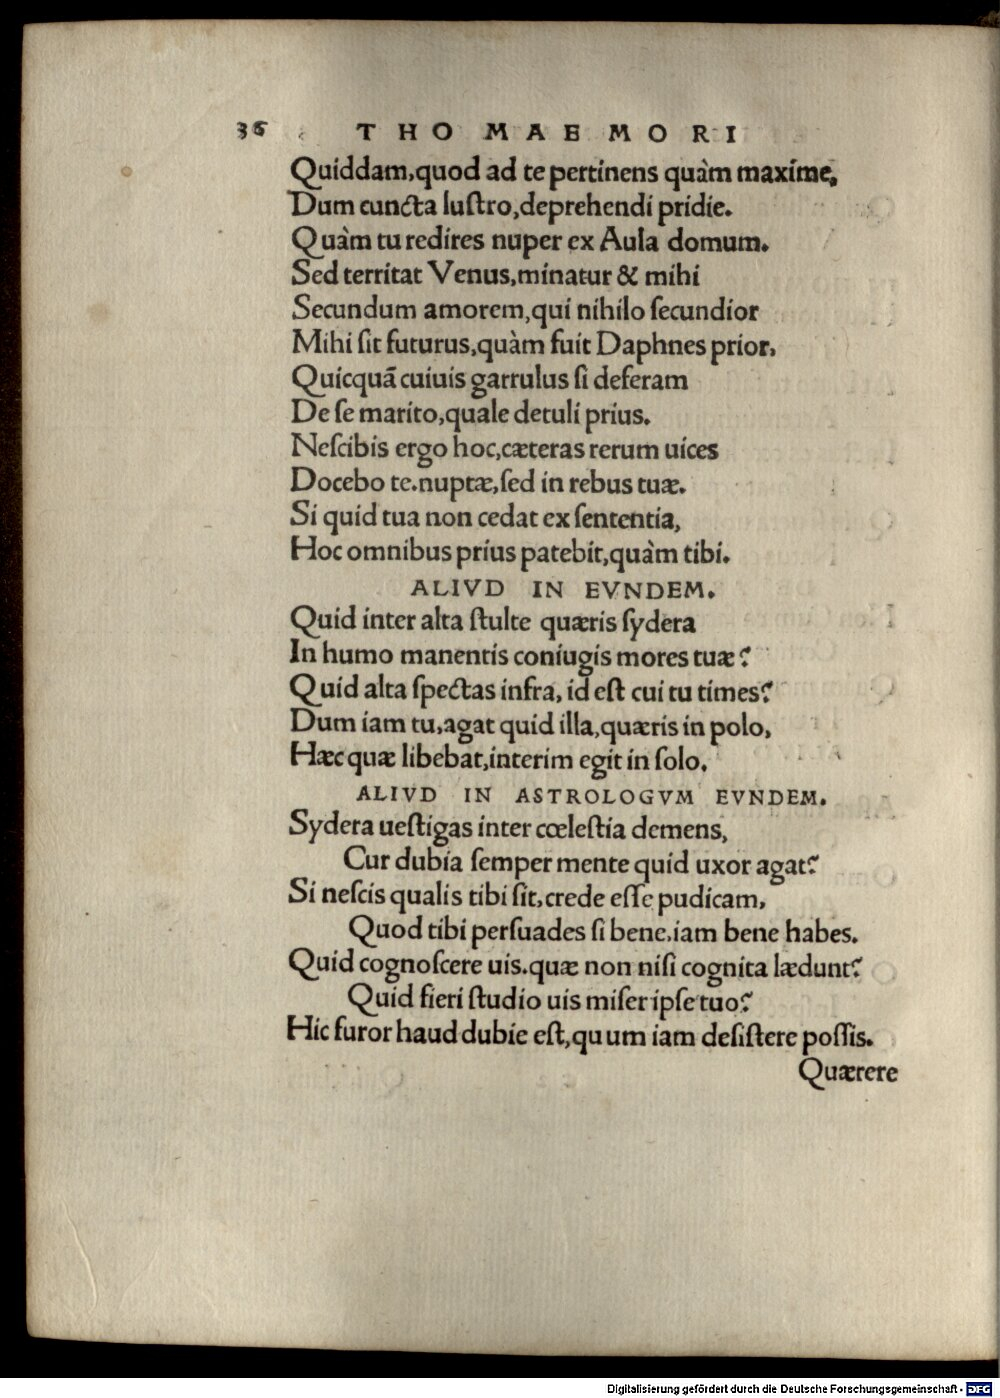 36 THOMAE MORI
Quiddam, quod ad te pertinens quàm maxime,
Dum cuncta luſtro, deprehendi pridie.
Quàm tu redires nuper ex Aula domum.
Sed territat Venus, minatur & mihi
Secundum amorem, qui nihilo ſecundior
Mihi ſit futurus, quàm fuit Daphnes prior,
Quicquã cuiuis garrulus ſi deferam
De ſe marito, quale detuli prius.
Neſcibis ergo hoc, cæteras rerum uices
Docebo te. nuptæ, ſed in rebus tuæ.
Si quid tua non cedat ex ſententia,
Hoc omnibus prius patebit, quàm tibi.
ALIVD IN EVNDEM.
Quid inter alta ſtulte quæris ſydera
In humo manentis coniugis mores tuæ?
Quid alta ſpectas infra, id eſt cui tu times?
Dum iam tu, agat quid illa, quæris in polo,
Hæc quæ libebat, interim egit in ſolo.
ALIVD IN ASTROLOGVM EVNDEM.
Sydera ueſtigas inter cœleſtia demens,
Cur dubia ſemper mente quid uxor agat?
Si neſcis qualis tibi ſit, crede eſſe pudicam,
Quod tibi perſuades ſi bene, iam bene habes.
Quid cognoſcere uis. quæ non niſi cognita lædunt?
Quid fieri ſtudio uis miſer ipſe tuo?
Hic furor haud dubie eſt, quum iam deſiſtere poſſis.
Quærere
Digitalisierung gefördert durch die Deutsche Forschungsgemeinschaft - DFG